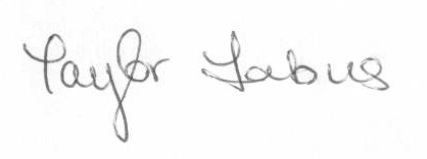 Taylor Labus